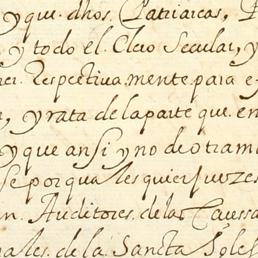 y que dhos. Patriarcas, P
y todo el Clero Secular, y
ner. Respectiva mente para e
, y rata de la parte que en
y que ansi y no de otra m
se por qua les quier juezes
n. Auditores de las Causas
ales de la Sancta Sede